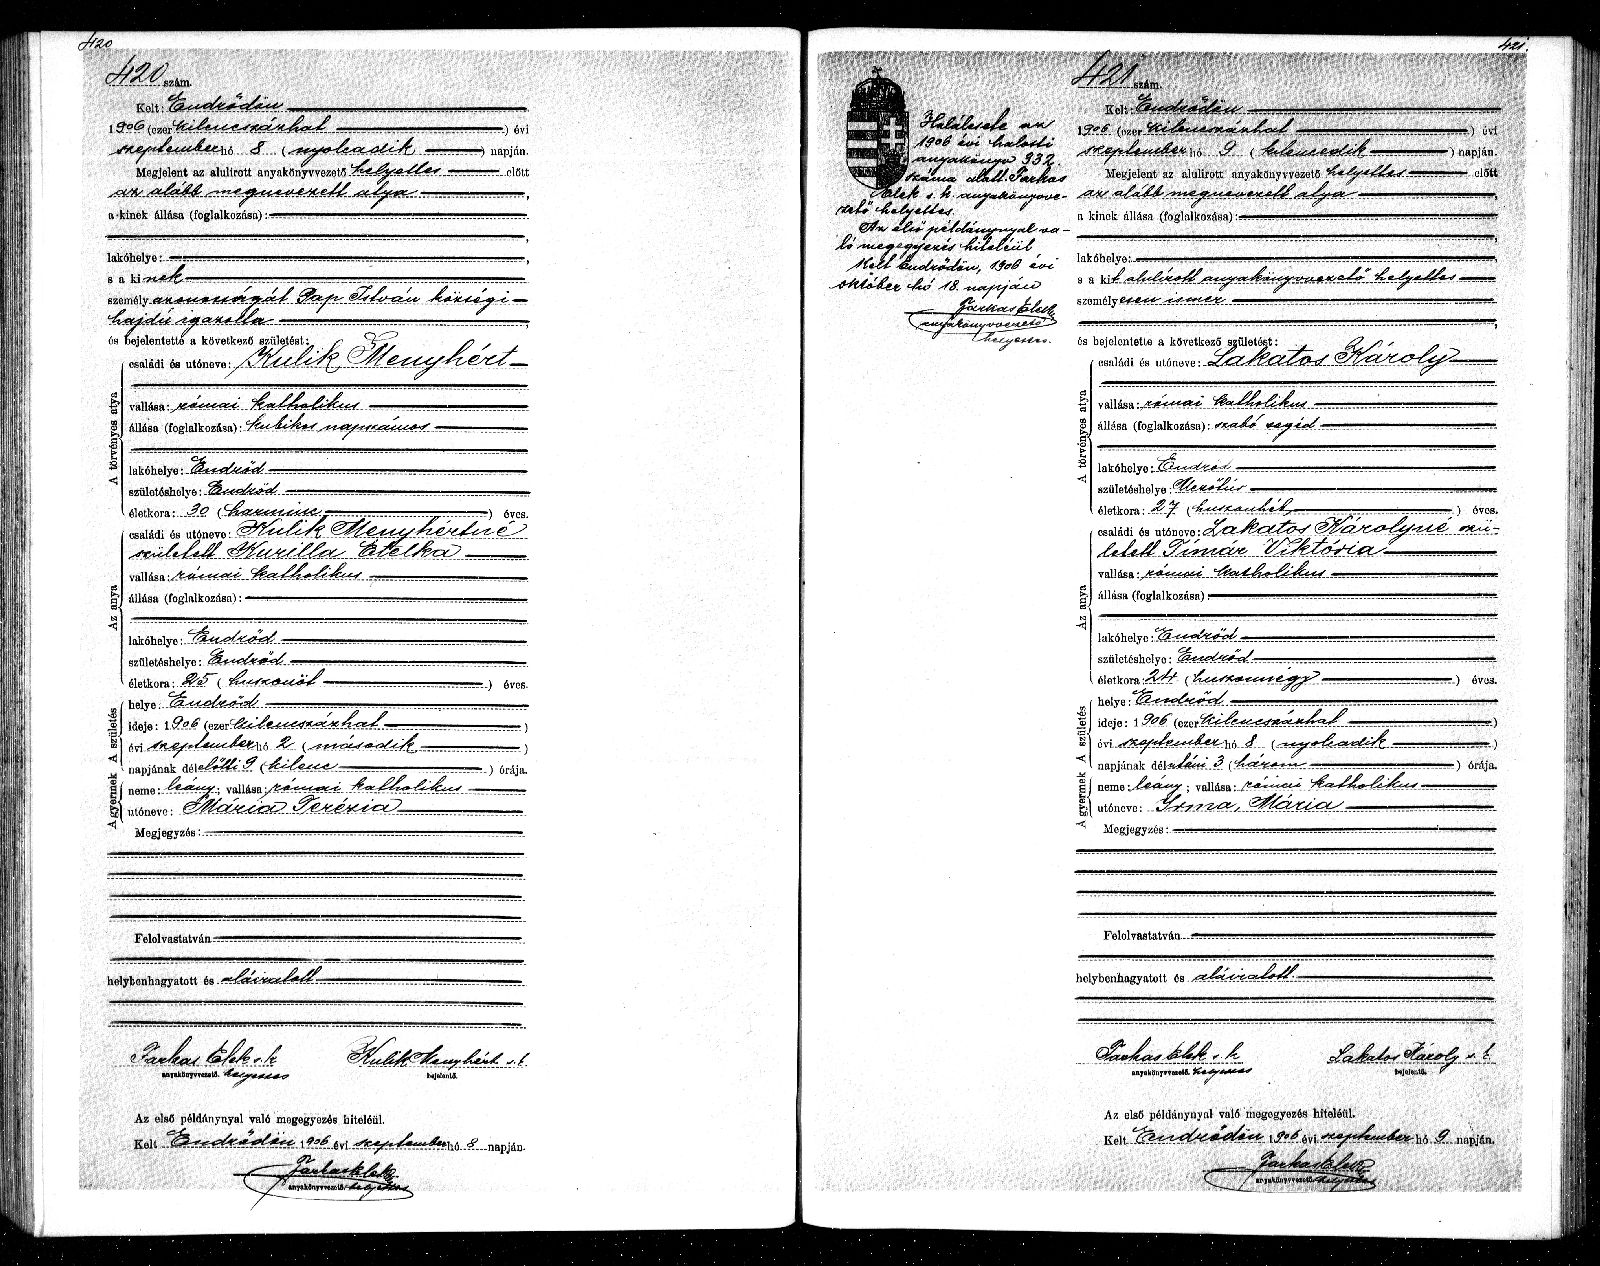 420
420 szám.
Kelt: Endrődön
1906 (ezer kilencszázhat) évi
szeptember hó 8 (nyolcadik) napján.
Megjelent az alulirott anyakönyvvezető helyettes előtt
az alább megnevezett atya,
a kinek állása (foglalkozása):
,
lakóhelye: ,
s a kinek
személyazonosságát Pap István községi
hajdú igazolta,
és bejelentette a következő születést:
A törvényes atya
családi és utóneve: Kulik Menyhért
vallása: római katholikus
állása (foglalkozása): kubikos napszámos
lakóhelye: Endrőd
születéshelye: Endrőd
életkora: 30 (harminc) éves.
Az anya
családi és utóneve: Kulik Menyhértné
született Kurilla Etelka
vallása: római katholikus
állása (foglalkozása):
lakóhelye: Endrőd
születéshelye: Endrőd
életkora: 25 (huszonöt) éves.
A születés
helye: Endrőd
ideje: 1906 (ezer kilencszázhat)
évi szeptember hó 2 (második)
napjának délelőtti 9 (kilenc) órája.
A gyermek
neme: leány; vallása: római katholikus
utóneve: Mária Terézia
Megjegyzés:
Felolvastatván
helybenhagyatott és aláiratott
Farkas Elek s. k. Kulik Menyhért s. k.
anyakönyvvezető. helyettes bejelentő.
Az első példánynyal való megegyezés hiteléül.
Kelt Endrődön 1906 évi szeptember hó 8 napján.
Farkas Elek
anyakönyvvezető. helyettes
421.
Halálesete az
1906 évi halotti
anyakönyv 332
száma alatt. Farkas
Elek s. k. anyakönyvve-
zető helyettes.
Az első példánynyal va-
ló megegyezés hiteléül
Kelt Endrődön, 1906 évi
október hó 18. napján
Farkas Elek
anyakönyvvezető
helyettes.
421 szám.
Kelt: Endrődön
1906 (ezer kilencszázhat) évi
szeptember hó 9 (kilencedik) napján.
Megjelent az alulirott anyakönyvvezető helyettes előtt
az alább megnevezett atya,
a kinek állása (foglalkozása):
,
lakóhelye: ,
s a kit alulírott anyakönyvvezető helyettes
személyesen ismer
,
és bejelentette a következő születést:
A törvényes atya
családi és utóneve: Lakatos Károly
vallása: római katholikus
állása (foglalkozása): szabó segéd
lakóhelye: Endrőd
születéshelye: Mezőtúr
életkora: 27 (huszonhét) éves.
Az anya
családi és utóneve: Lakatos Károlyné szü-
letett Tímár Viktória
vallása: római katholikus
állása (foglalkozása):
lakóhelye: Endrőd
születéshelye: Endrőd
életkora: 24 (huszonnégy) éves.
A születés
helye: Endrőd
ideje: 1906 (ezer kilencszázhat)
évi szeptember hó 8 (nyolcadik)
napjának délutáni 3 (három) órája.
A gyermek
neme: leány; vallása: római katholikus
utóneve: Irma, Mária
Megjegyzés:
Felolvastatván
helybenhagyatott és aláiratott
Farkas Elek s. k. Lakatos Károly s. k.
anyakönyvvezető. helyettes bejelentő.
Az első példánynyal való megegyezés hiteléül.
Kelt Endrődön 1906 évi szeptember hó 9 napján.
Farkas Elek
anyakönyvvezető. helyettes